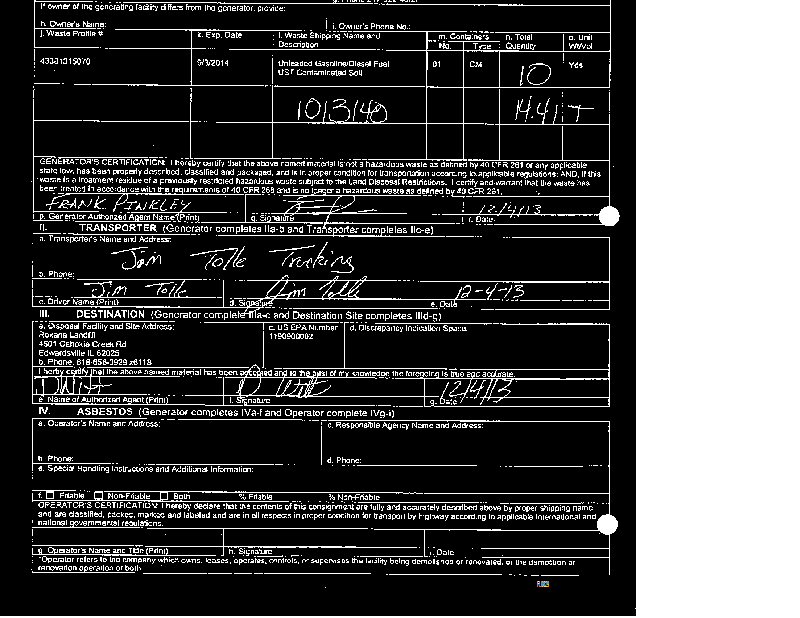 If owner of the generating facility differs from the generator, provide:
h. Owner's Name: i. Owner's Phone No.:
j. Waste Profile # k. Exp. Date l. Waste Shipping Name and Description m. Containers No. Type n. Total Quantity o. Unit Wt/Vol
43331315070 9/3/2014 Unleaded Gasoline/Diesel Fuel UST Contaminated Soil 01 CM 10 Yds
1013140 14.41 T
GENERATOR'S CERTIFICATION: I hereby certify that the above named material is not a hazardous waste as defined by 40 CFR 261 or any applicable
state law, has been properly described, classified and packaged, and is in proper condition for transportation according to applicable regulations; AND, if this
waste is a treatment residue of a previously restricted hazardous waste subject to the Land Disposal Restrictions. I certify and warrant that the waste has
been treated in accordance with the requirements of 40 CFR 268 and is no longer a hazardous waste as defined by 40 CFR 261.
FRANK PINKLEY 12/4/13
p. Generator Authorized Agent Name (Print) q. Signature r. Date
II. TRANSPORTER (Generator completes IIa-b and Transporter completes IIc-e)
a. Transporter's Name and Address:
Jim Tolle Trucking
b. Phone:
Jim Tolle Jim Tolle 12-4-13
c. Driver Name (Print) d. Signature e. Date
III. DESTINATION (Generator complete IIIa-c and Destination Site completes IIId-g)
a. Disposal Facility and Site Address: c. US EPA Number d. Discrepancy Indication Space:
Roxana Landfill 1190900002
4601 Cahokia Creek Rd
Edwardsville IL 62025
b. Phone: 618-656-0929 x6118
I hereby certify that the above named material has been accepted and to the best of my knowledge the foregoing is true and accurate.
D Witt D Witt 12/4/13
e. Name of Authorized Agent (Print) f. Signature g. Date
IV. ASBESTOS (Generator completes IVa-f and Operator complete IVg-i)
a. Operator's Name and Address: c. Responsible Agency Name and Address:
b. Phone: d. Phone:
e. Special Handling Instructions and Additional Information:
f. Friable Non-Friable Both % Friable % Non-Friable
OPERATOR'S CERTIFICATION: I hereby declare that the contents of this consignment are fully and accurately described above by proper shipping name
and are classified, packed, marked and labeled and are in all respects in proper condition for transport by highway according to applicable international and
national governmental regulations.
g. Operator's Name and Title (Print) h. Signature i. Date
*Operator refers to the company which owns, leases, operates, controls, or supervises the facility being demolished or renovated, or the demolition or
renovation operation or both